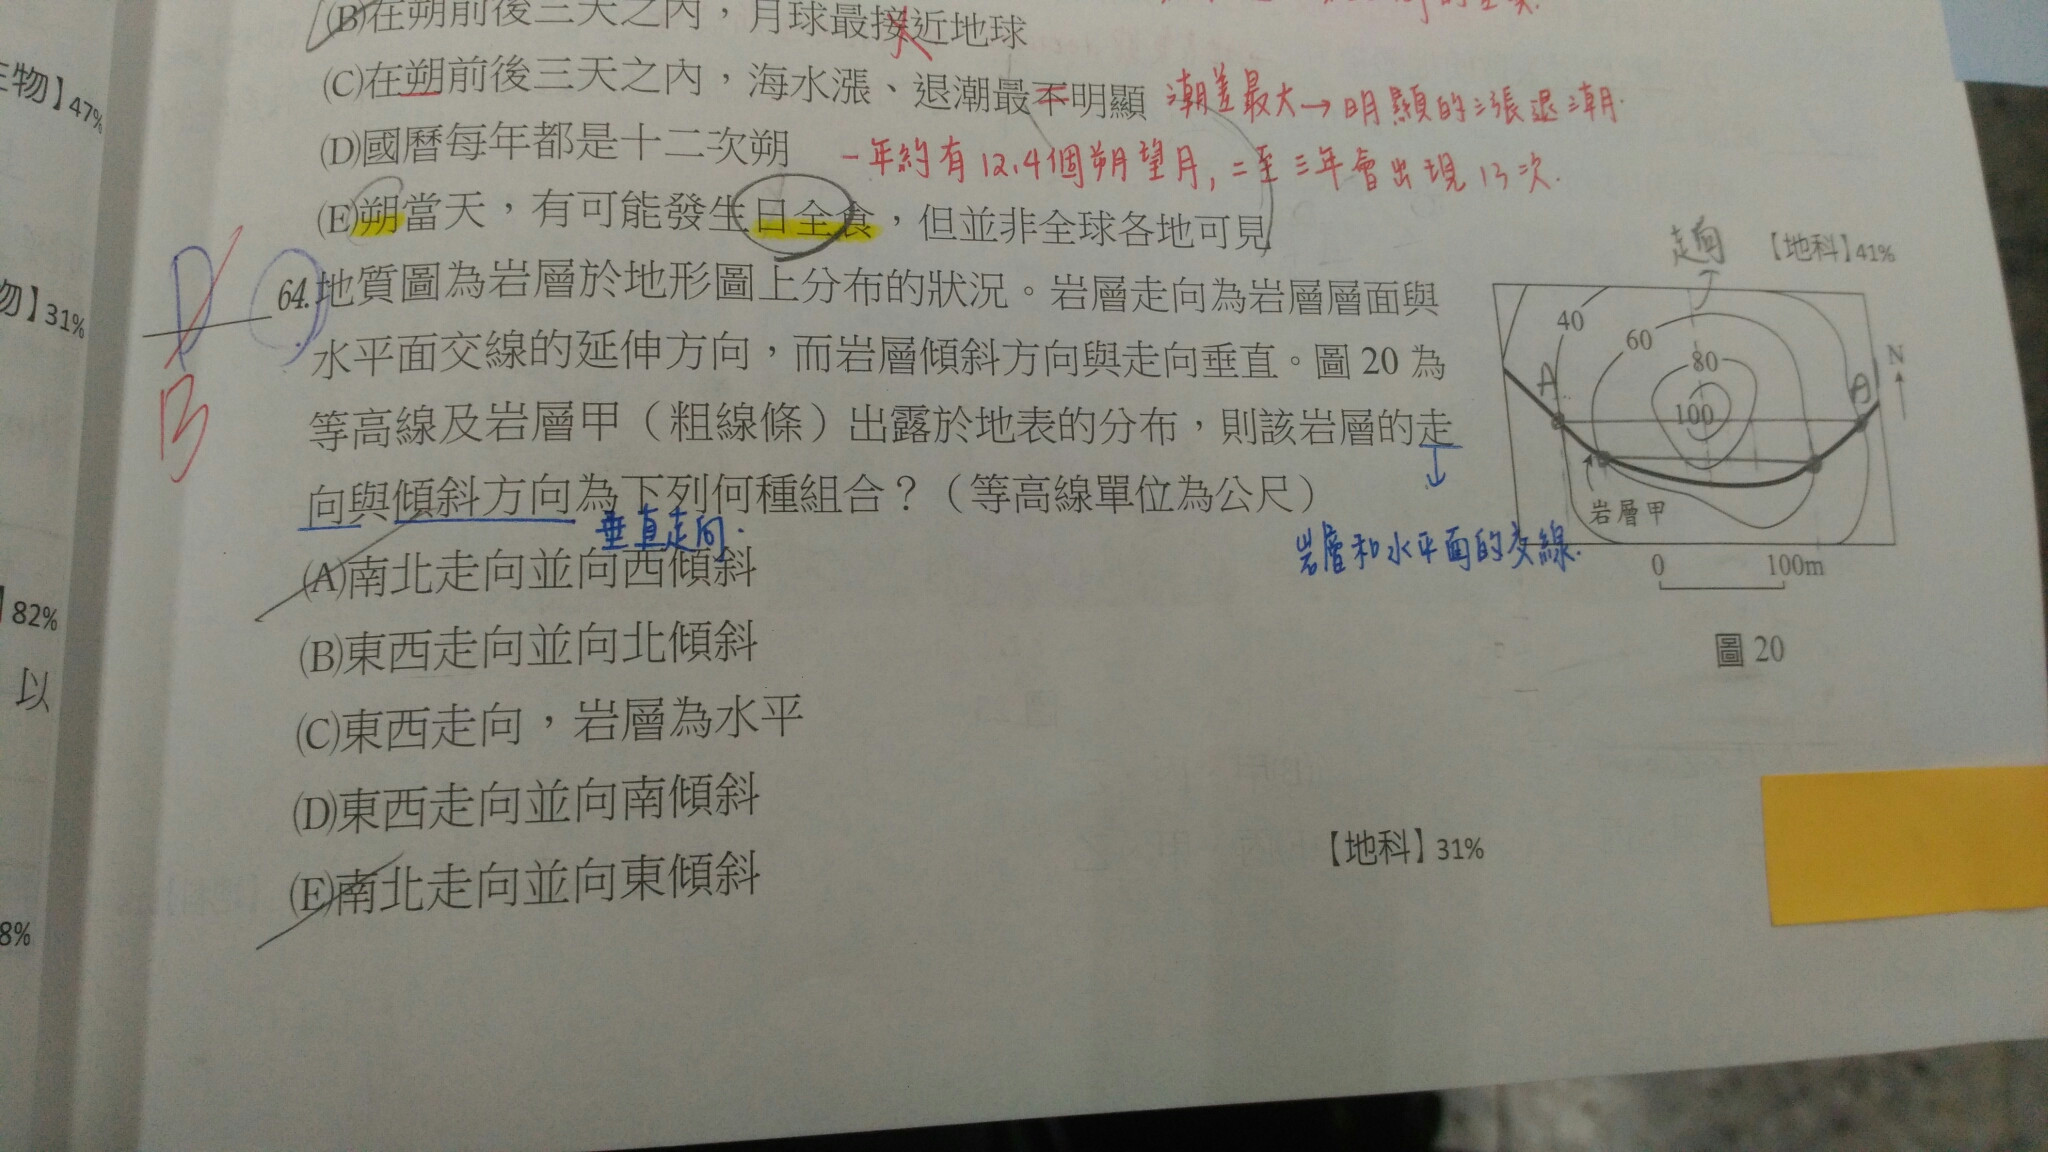 (B)在朔前後三天之內，月球最接近地球
(C)在朔前後三天之內，海水漲、退潮最不明顯 潮差最大→明顯的漲退潮.
(D)國曆每年都是十二次朔 一年約有12.4個朔望月，二至三年會出現13次.
(E)朔當天，有可能發生日全食，但並非全球各地可見
【地科】41%
物】47%
物】31%
】82%
以
8%
D
B
64.地質圖為岩層於地形圖上分布的狀況。岩層走向為岩層層面與
水平面交線的延伸方向，而岩層傾斜方向與走向垂直。圖 20 為
等高線及岩層甲（粗線條）出露於地表的分布，則該岩層的走
向與傾斜方向為下列何種組合？（等高線單位為公尺）
垂直走向.
岩層和水平面的交線.
(A)南北走向並向西傾斜
(B)東西走向並向北傾斜
(C)東西走向，岩層為水平
(D)東西走向並向南傾斜
(E)南北走向並向東傾斜
【地科】31%
走向
40
60
80
100
A
A
N
岩層甲
0 100m
圖 20